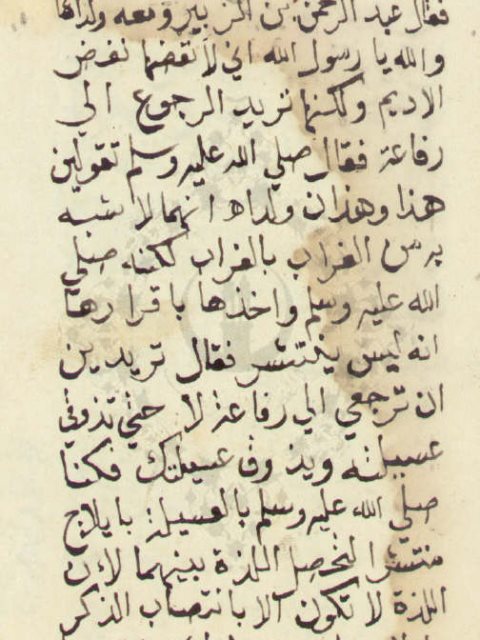 فقال عبد الرحمن بن الزبير ومعه ولداها
والله يا رسول الله اني لانفضها نفض
الاديم ولكنها تريد الرجوع الي
رفاعة فقال صلي الله عليه وسلم تقولين
هذا وهذان ولداه انهما لاشبه
به من الغراب بالغراب لكنه صلي
الله عليه وسلم واخذها باقرارها
انه ليس ينتشر فقال تريدين
ان ترجعي الي رفاعة لا حتي تذوقي
عسيلته ويذوق عسيلتك فكنا
صلي الله عليه وسلم بالعسيلة بايلاج
منتشر التحصل اللذة بينهما لان
اللذة لا تكون الا بانتصاب الذكر